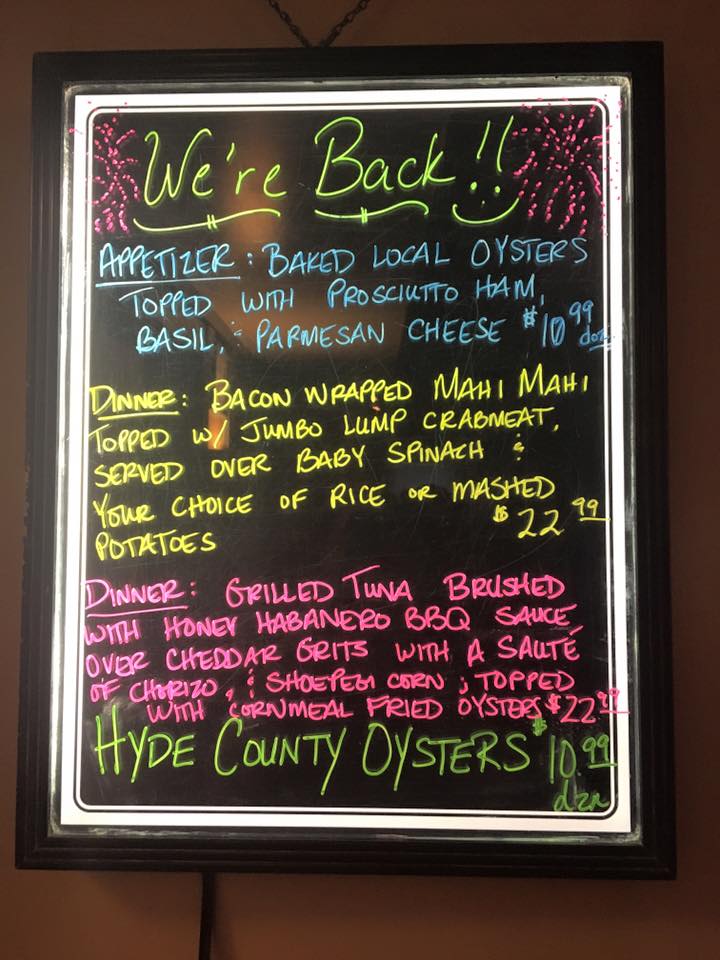 We're Back!!
APPETIZER: BAKED LOCAL OYSTERS
TOPPED WITH PROSCIUTTO HAM,
BASIL, & PARMESAN CHEESE $10.99 doz
DINNER: BACON WRAPPED MAHI MAHI
TOPPED W/ JUMBO LUMP CRABMEAT,
SERVED OVER BABY SPINACH &
YOUR CHOICE OF RICE OR MASHED
POTATOES $22.99
DINNER: GRILLED TUNA BRUSHED
WITH HONEY HABANERO BBQ SAUCE
OVER CHEDDAR GRITS WITH A SAUTÉ
OF CHORIZO, & SHOEPEG CORN; TOPPED
WITH CORNMEAL FRIED OYSTERS $22.99
HYDE COUNTY OYSTERS $10.99
dzn